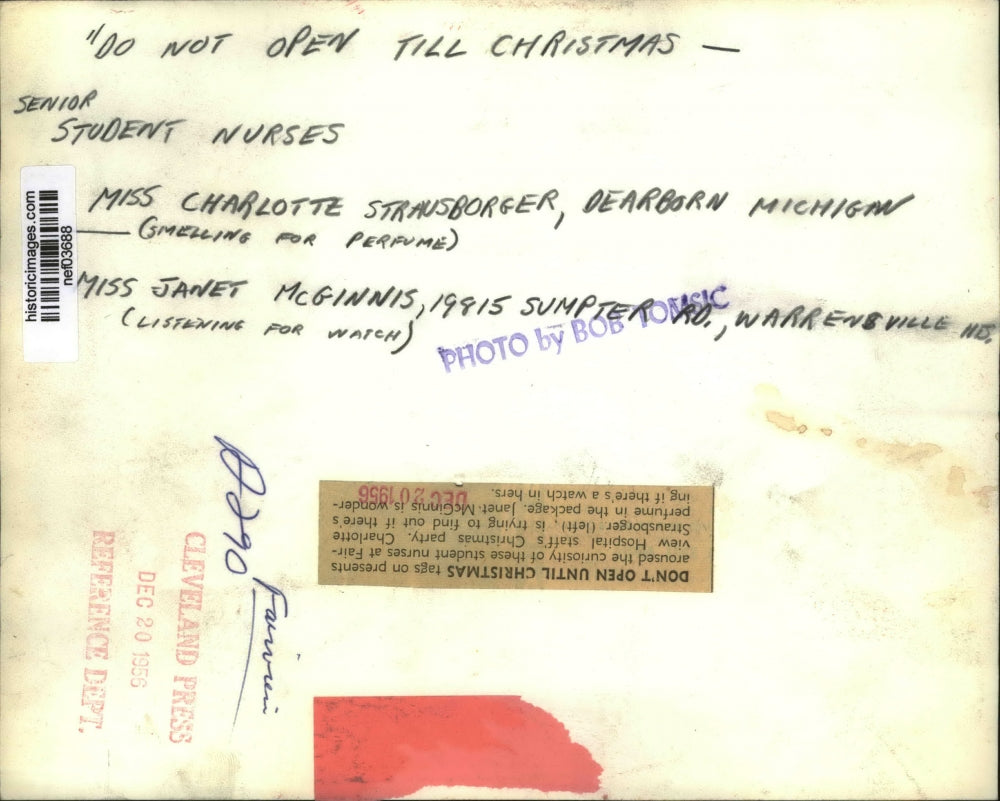 "DO NOT OPEN TILL CHRISTMAS —
SENIOR
STUDENT NURSES
MISS CHARLOTTE STRAUSBORGER, DEARBORN MICHIGAN
(SMELLING FOR PERFUME)
MISS JANET McGINNIS, 19815 SUMPTER RD., WARRENSVILLE
(LISTENING FOR WATCH)
PHOTO by BOB TOMSIC
historicimages.com
nef03688
DON'T OPEN UNTIL CHRISTMAS tags on presents
aroused the curiosity of these student nurses at Fair-
view Hospital staff's Christmas party. Charlotte
Strausborger (left), is trying to find out if there's
perfume in the package. Janet McGinnis is wonder-
ing if there's a watch in hers.
DEC 20 1956
CLEVELAND PRESS
DEC 20 1956
REFERENCE DEPT.